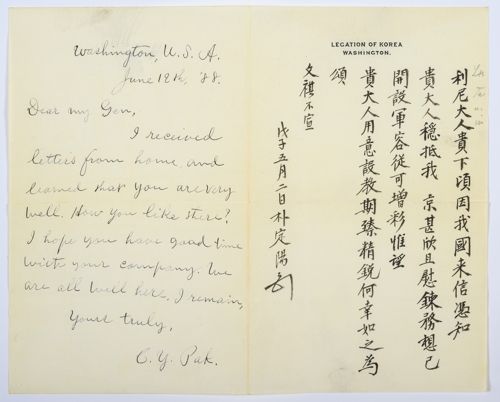 Washington, U.S.A.
June 12th, '88.
Dear my Gen,
I received
letters from home and
learned that you are very
well. How you like there?
I hope you have good time
with your company. We
are all well here. I remain,
Yours truly,
C. Y. Pak.
LEGATION OF KOREA
WASHINGTON.
利尼大人貴下頃因我國来信憑知
貴大人穩抵我 京甚欣且慰鍊務想已
開設軍容從可增彩惟望
貴大人用意設敎期臻精銳何幸如之為
頌
文祺不宣
戊子五月二日朴定陽